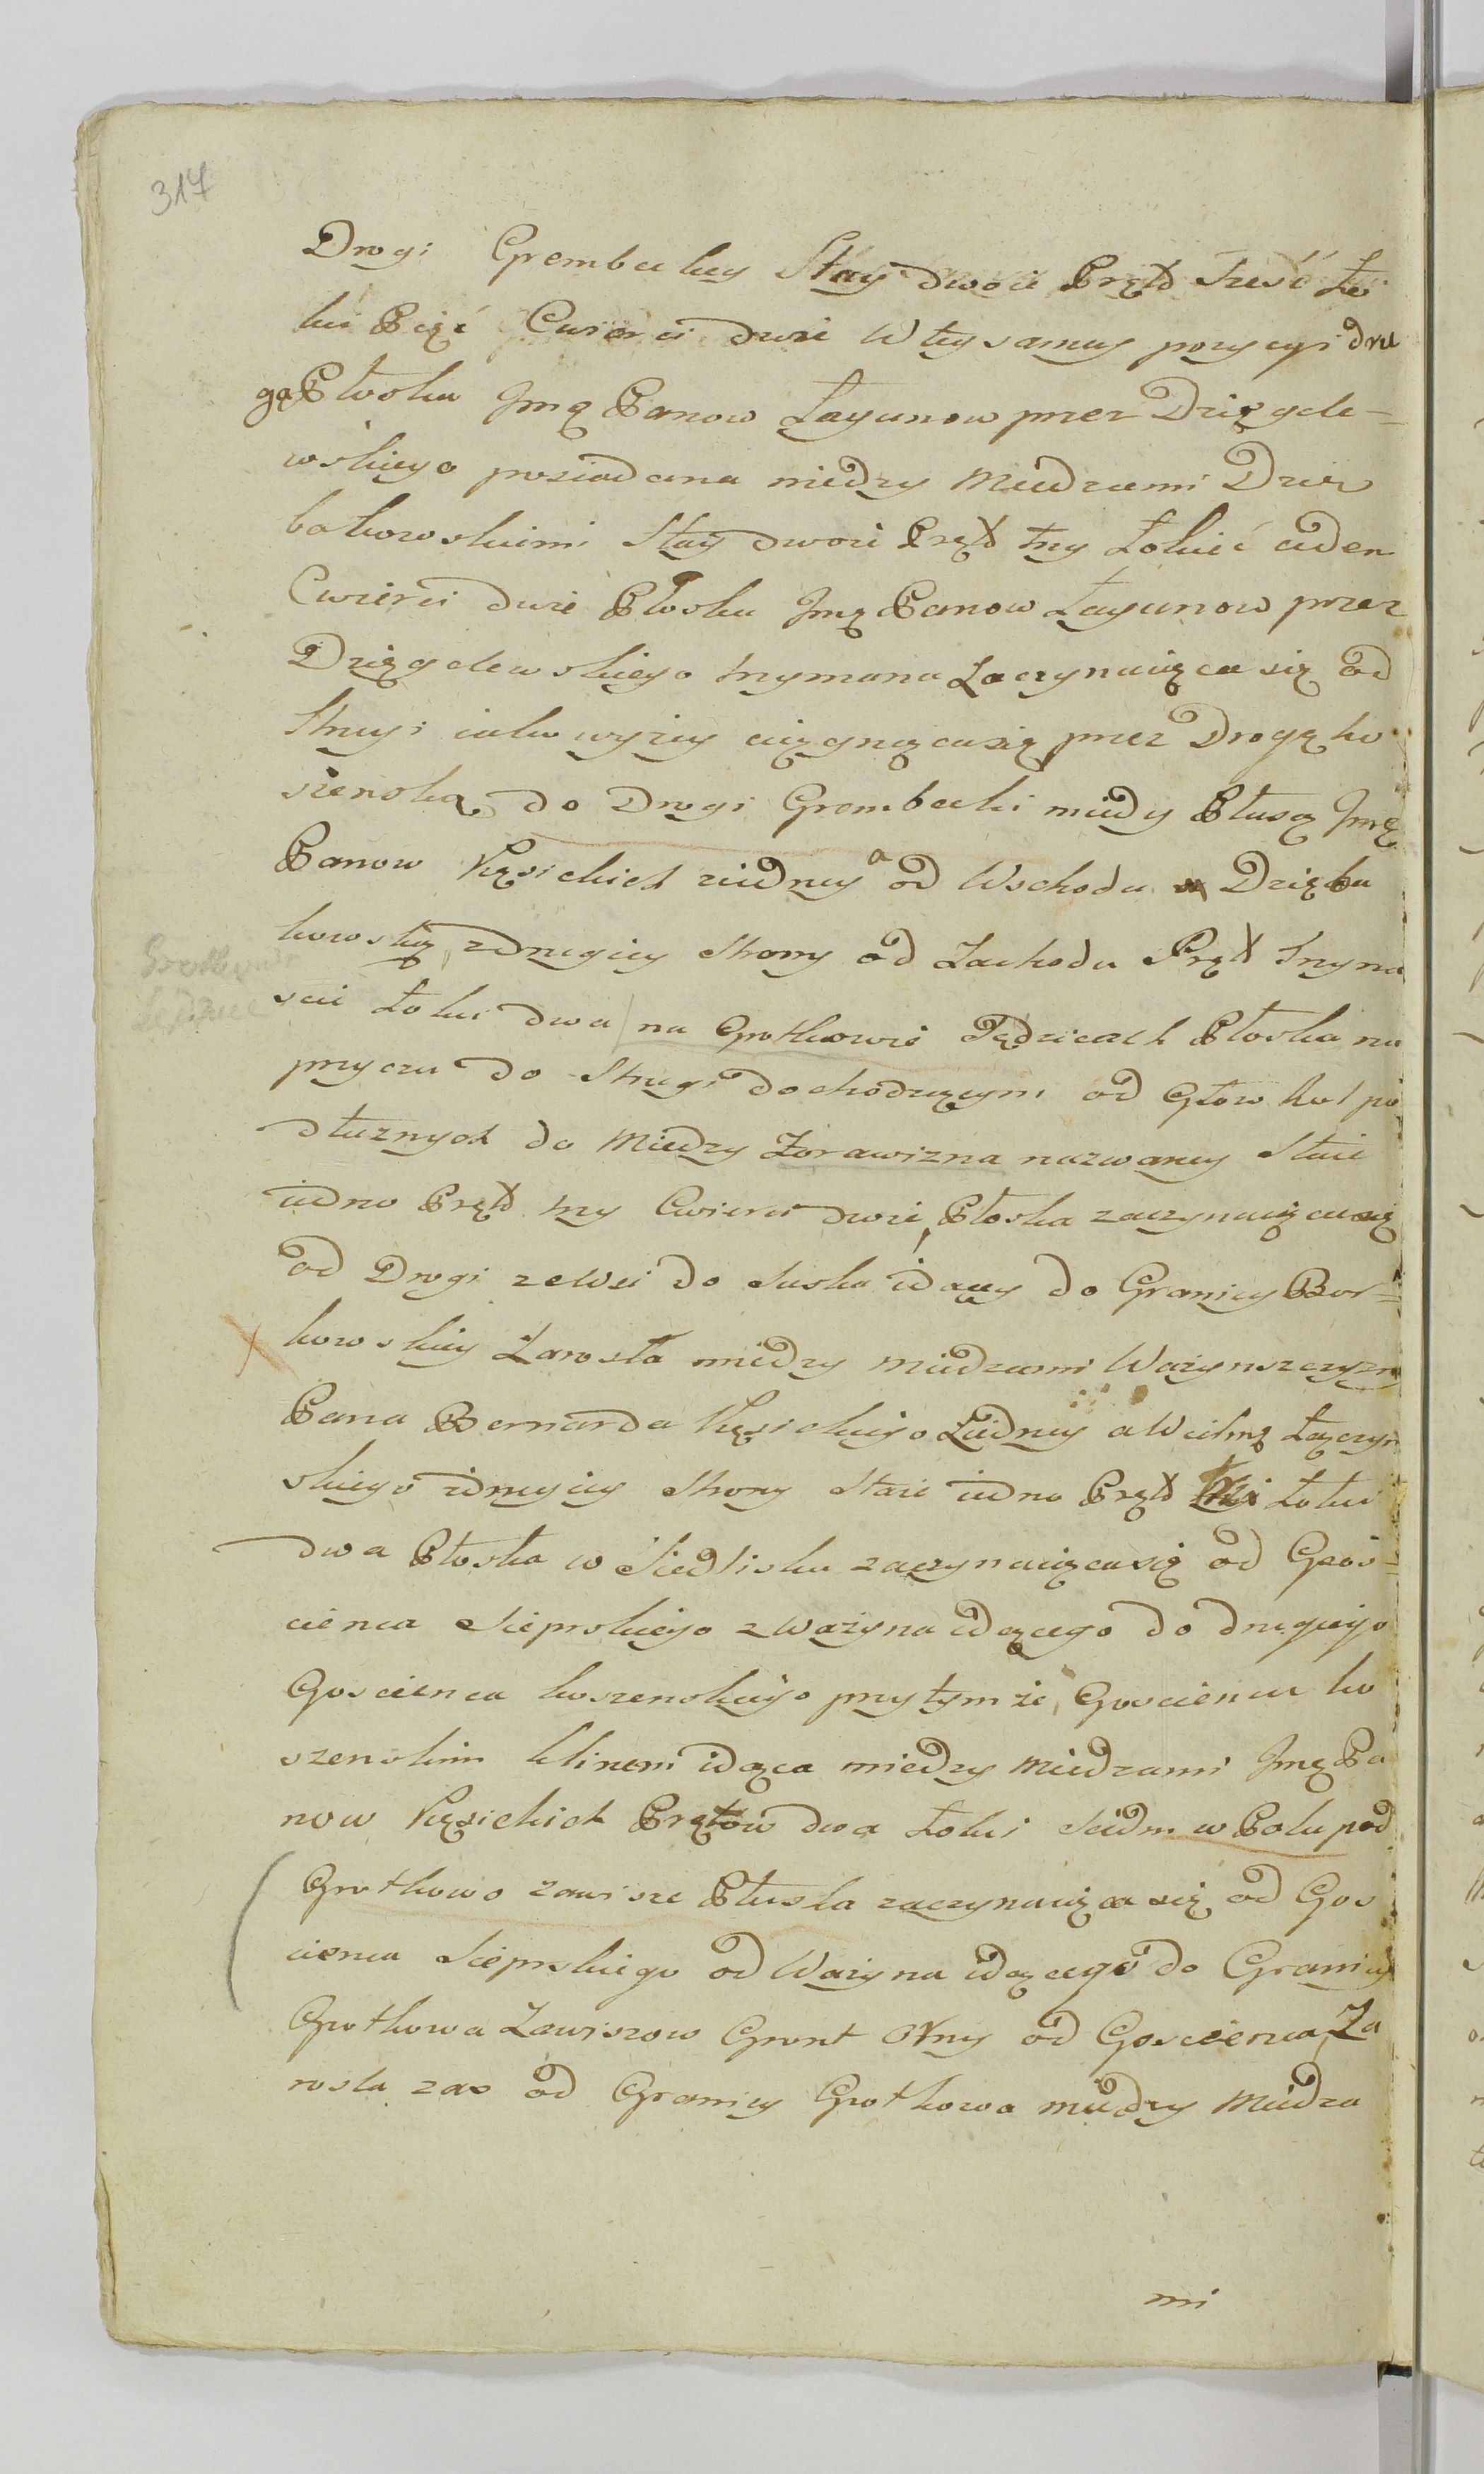 317
Drogi Grembeckey Stay dwoie Pręt Sześć Ło
kci Pięć Cwierci dwie W tey samey pozycyi dru
gą Płoska Jmę Panow Łagunow przez Dzięgele-
wskiego posiadana miedzy Miedzami Dzię
bakowskiemi Stay dwoie Pręt trzy Łokieć ieden
Cwierci dwie Płoska Jmę Panow Łagunow przez
Dzięgelewskiego trzymana Zaczynaiąca się od
Strugi iako wyzey ciągnącasię przez Drogę ko
szenską do Drogi Grembecki miedzy Płusą Jmę
Panow Kęsickich ziedney a od Wschodu Dzięba
kowską zdrugiey Strony od Zachodu Pręt Trzyna
scie Łokci dwa na Grotkowie Pędzicach Płoska na
przyczu do Strugi dochodzącym od Głow Rol po
dłuznych do Miedzy Żorawizna nazwaney Staie
iedno Pręt trzy Cwierci dwie, Płoska zaczynaiącasię
od Drogi zeWsi do Suska idący do Granicy Bor=
kowskiey Zarosła miedzy miedzami Ważynszczyzny
Pana Bernarda Kęsickiego Ziedney a WeiJmę Łączyn
skiego zdrugiey Strony Staie iedno Pręt Łokci
dwa Płoska w Siedlisku zaczynaiącasię od Gos=
cienca Sieprskiego zWażyna idącego do drugiego
Goscienca koszenskiego przytymże Gosciencu ko
szenskim klinem idąca miedzy Miedzami Jmę Pa
now Kęsickich Prętow dwa Łokci Siedm w Polu pod
Grotkowo zawisze Płuska zaczynaiąca się od Gos
cienca Sieprskiego od Ważyna idącego do Granicy
Grotkowa Zawiszow Grunt Orny od Goscienca, Za
rosla zas od Granicy Grotkowa miedzy Miedza
mi